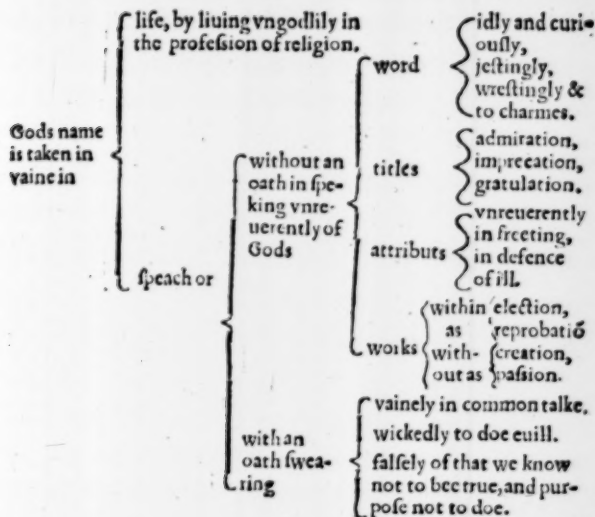 life, by liuing vngodlily in
the profeſsion of religion.
Gods name
is taken in
vaine in
ſpeach or
without an
oath in ſpe-
king vnre-
uerently of
Gods
word
idly and curi-
ouſly,
jeſtingly,
wreſtingly &
to charmes.
titles
admiration,
imprecation,
gratulation.
attributs
vnreuerently
in freeting,
in defence
of ill.
works
within
as
election,
reprobatiõ
with-
out as
creation,
paſsion.
with an
oath ſwea-
ring
vainely in common talke.
wickedly to doe euill.
falſely of that we know
not to bee true, and pur-
poſe not to doe.